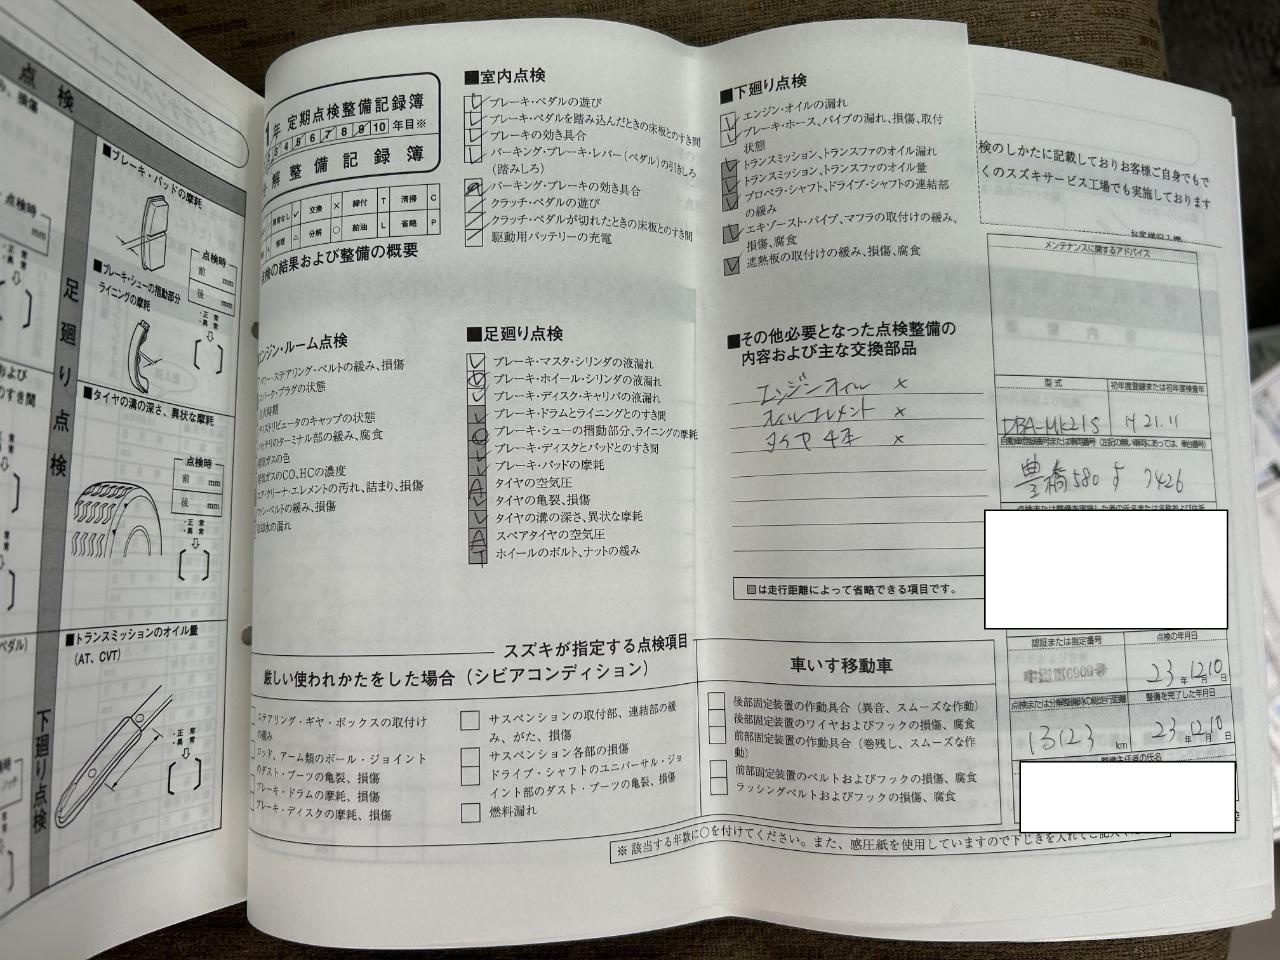 点検
■ブレーキ・パッドの摩耗
点検時
前 mm
後 mm
■ブレーキ・シューの摺動部分
ライニングの摩耗
足廻り点検
■タイヤの溝の深さ、異状な摩耗
点検時
前 mm
後 mm
■トランスミッションのオイル量
(AT、CVT)
下廻り点検
1年 定期点検整備記録簿
年目※
分解整備記録簿
交換 × 締付 T 清掃 C
分解 ○ 給油 L 省略 P
点検の結果および整備の概要
エンジン・ルーム点検
パワー・ステアリング・ベルトの緩み、損傷
スパーク・プラグの状態
点火時期
ディストリビュータのキャップの状態
バッテリのターミナル部の緩み、腐食
排気ガスの色
排気ガスのCO、HCの濃度
エア・クリーナ・エレメントの汚れ、詰まり、損傷
ファン・ベルトの緩み、損傷
冷却水の漏れ
■室内点検
ブレーキ・ペダルの遊び
ブレーキ・ペダルを踏み込んだときの床板とのすき間
ブレーキの効き具合
パーキング・ブレーキ・レバー(ペダル)の引きしろ
(踏みしろ)
パーキング・ブレーキの効き具合
クラッチ・ペダルの遊び
クラッチ・ペダルが切れたときの床板とのすき間
駆動用バッテリーの充電
■足廻り点検
ブレーキ・マスタ・シリンダの液漏れ
ブレーキ・ホイール・シリンダの液漏れ
ブレーキ・ディスク・キャリパの液漏れ
ブレーキ・ドラムとライニングとのすき間
ブレーキ・シューの摺動部分、ライニングの摩耗
ブレーキ・ディスクとパッドとのすき間
ブレーキ・パッドの摩耗
タイヤの空気圧
タイヤの亀裂、損傷
タイヤの溝の深さ、異状な摩耗
スペアタイヤの空気圧
ホイールのボルト、ナットの緩み
■下廻り点検
エンジン・オイルの漏れ
ブレーキ・ホース、パイプの漏れ、損傷、取付
状態
トランスミッション、トランスファのオイル漏れ
トランスミッション、トランスファのオイル量
プロペラ・シャフト、ドライブ・シャフトの連結部
の緩み
エキゾースト・パイプ、マフラの取付けの緩み、
損傷、腐食
遮熱板の取付けの緩み、損傷、腐食
■その他必要となった点検整備の
内容および主な交換部品
エンジンオイル ×
オイルエレメント ×
タイヤ 4本 ×
■は走行距離によって省略できる項目です。
スズキが指定する点検項目
厳しい使われかたをした場合(シビアコンディション)
ステアリング・ギヤ・ボックスの取付け
の緩み
ロッド、アーム類のボール・ジョイント
のダスト・ブーツの亀裂、損傷
ブレーキ・ドラムの摩耗、損傷
ブレーキ・ディスクの摩耗、損傷
サスペンションの取付部、連結部の緩
み、がた、損傷
サスペンション各部の損傷
ドライブ・シャフトのユニバーサル・ジョ
イント部のダスト・ブーツの亀裂、損傷
燃料漏れ
車いす移動車
後部固定装置の作動具合(異音、スムーズな作動)
後部固定装置のワイヤおよびフックの損傷、腐食
前部固定装置の作動具合(巻残し、スムーズな作
動)
前部固定装置のベルトおよびフックの損傷、腐食
ラッシングベルトおよびフックの損傷、腐食
※該当する年数に○を付けてください。また、感圧紙を使用していますので下じきを入れてご記入
検のしかたに記載しておりお客様ご自身でもで
くのスズキサービス工場でも実施しております
メンテナンスに関するアドバイス
型式
初年度登録または初年度検査年
DBA-MK21S
H21.11
豊橋580 す 7426
認証または指定番号
点検の年月日
23年12月10日
点検または分解整備時の総走行距離
整備を完了した年月日
13123 km
23年12月10日
整備主任者の氏名